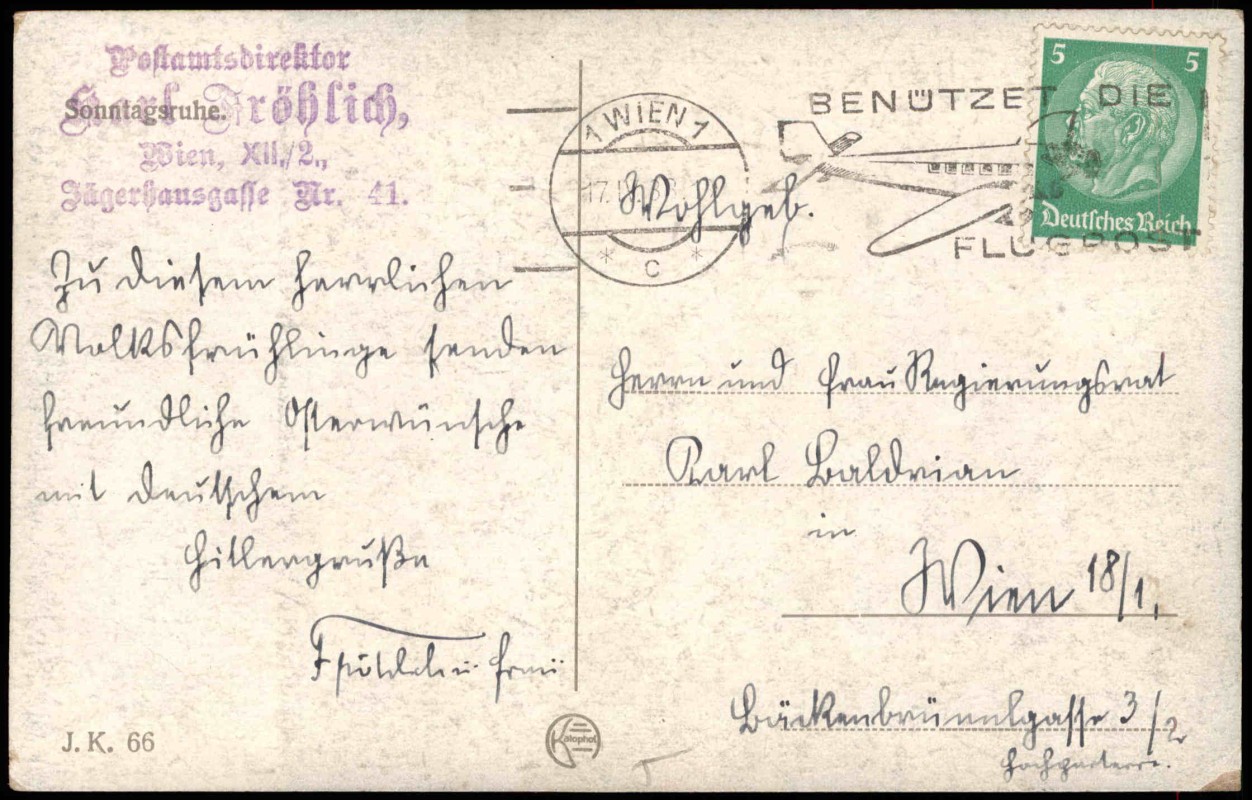 Postamtsdirektor
Karl Fröhlich,
Sonntagsruhe.
Wien, XII./2.,
Jägerhausgasse Nr. 41.
Zu diesem herrlichen
Volksfrühlinge senden
freundliche Osterwünsche
mit deutschem
Hitlergruße
Frau
J. K. 66
Kalophot
1 WIEN 1
17.
* C *
BENÜTZET DIE
FLUGPOST
5 5
Deutsches Reich
Wohlgeb.
Herrn und Frau Regierungsrat
Karl Baldrian
in
Wien 18/1.
Bäckenbrünnlgasse 3/2
Hochparterre.